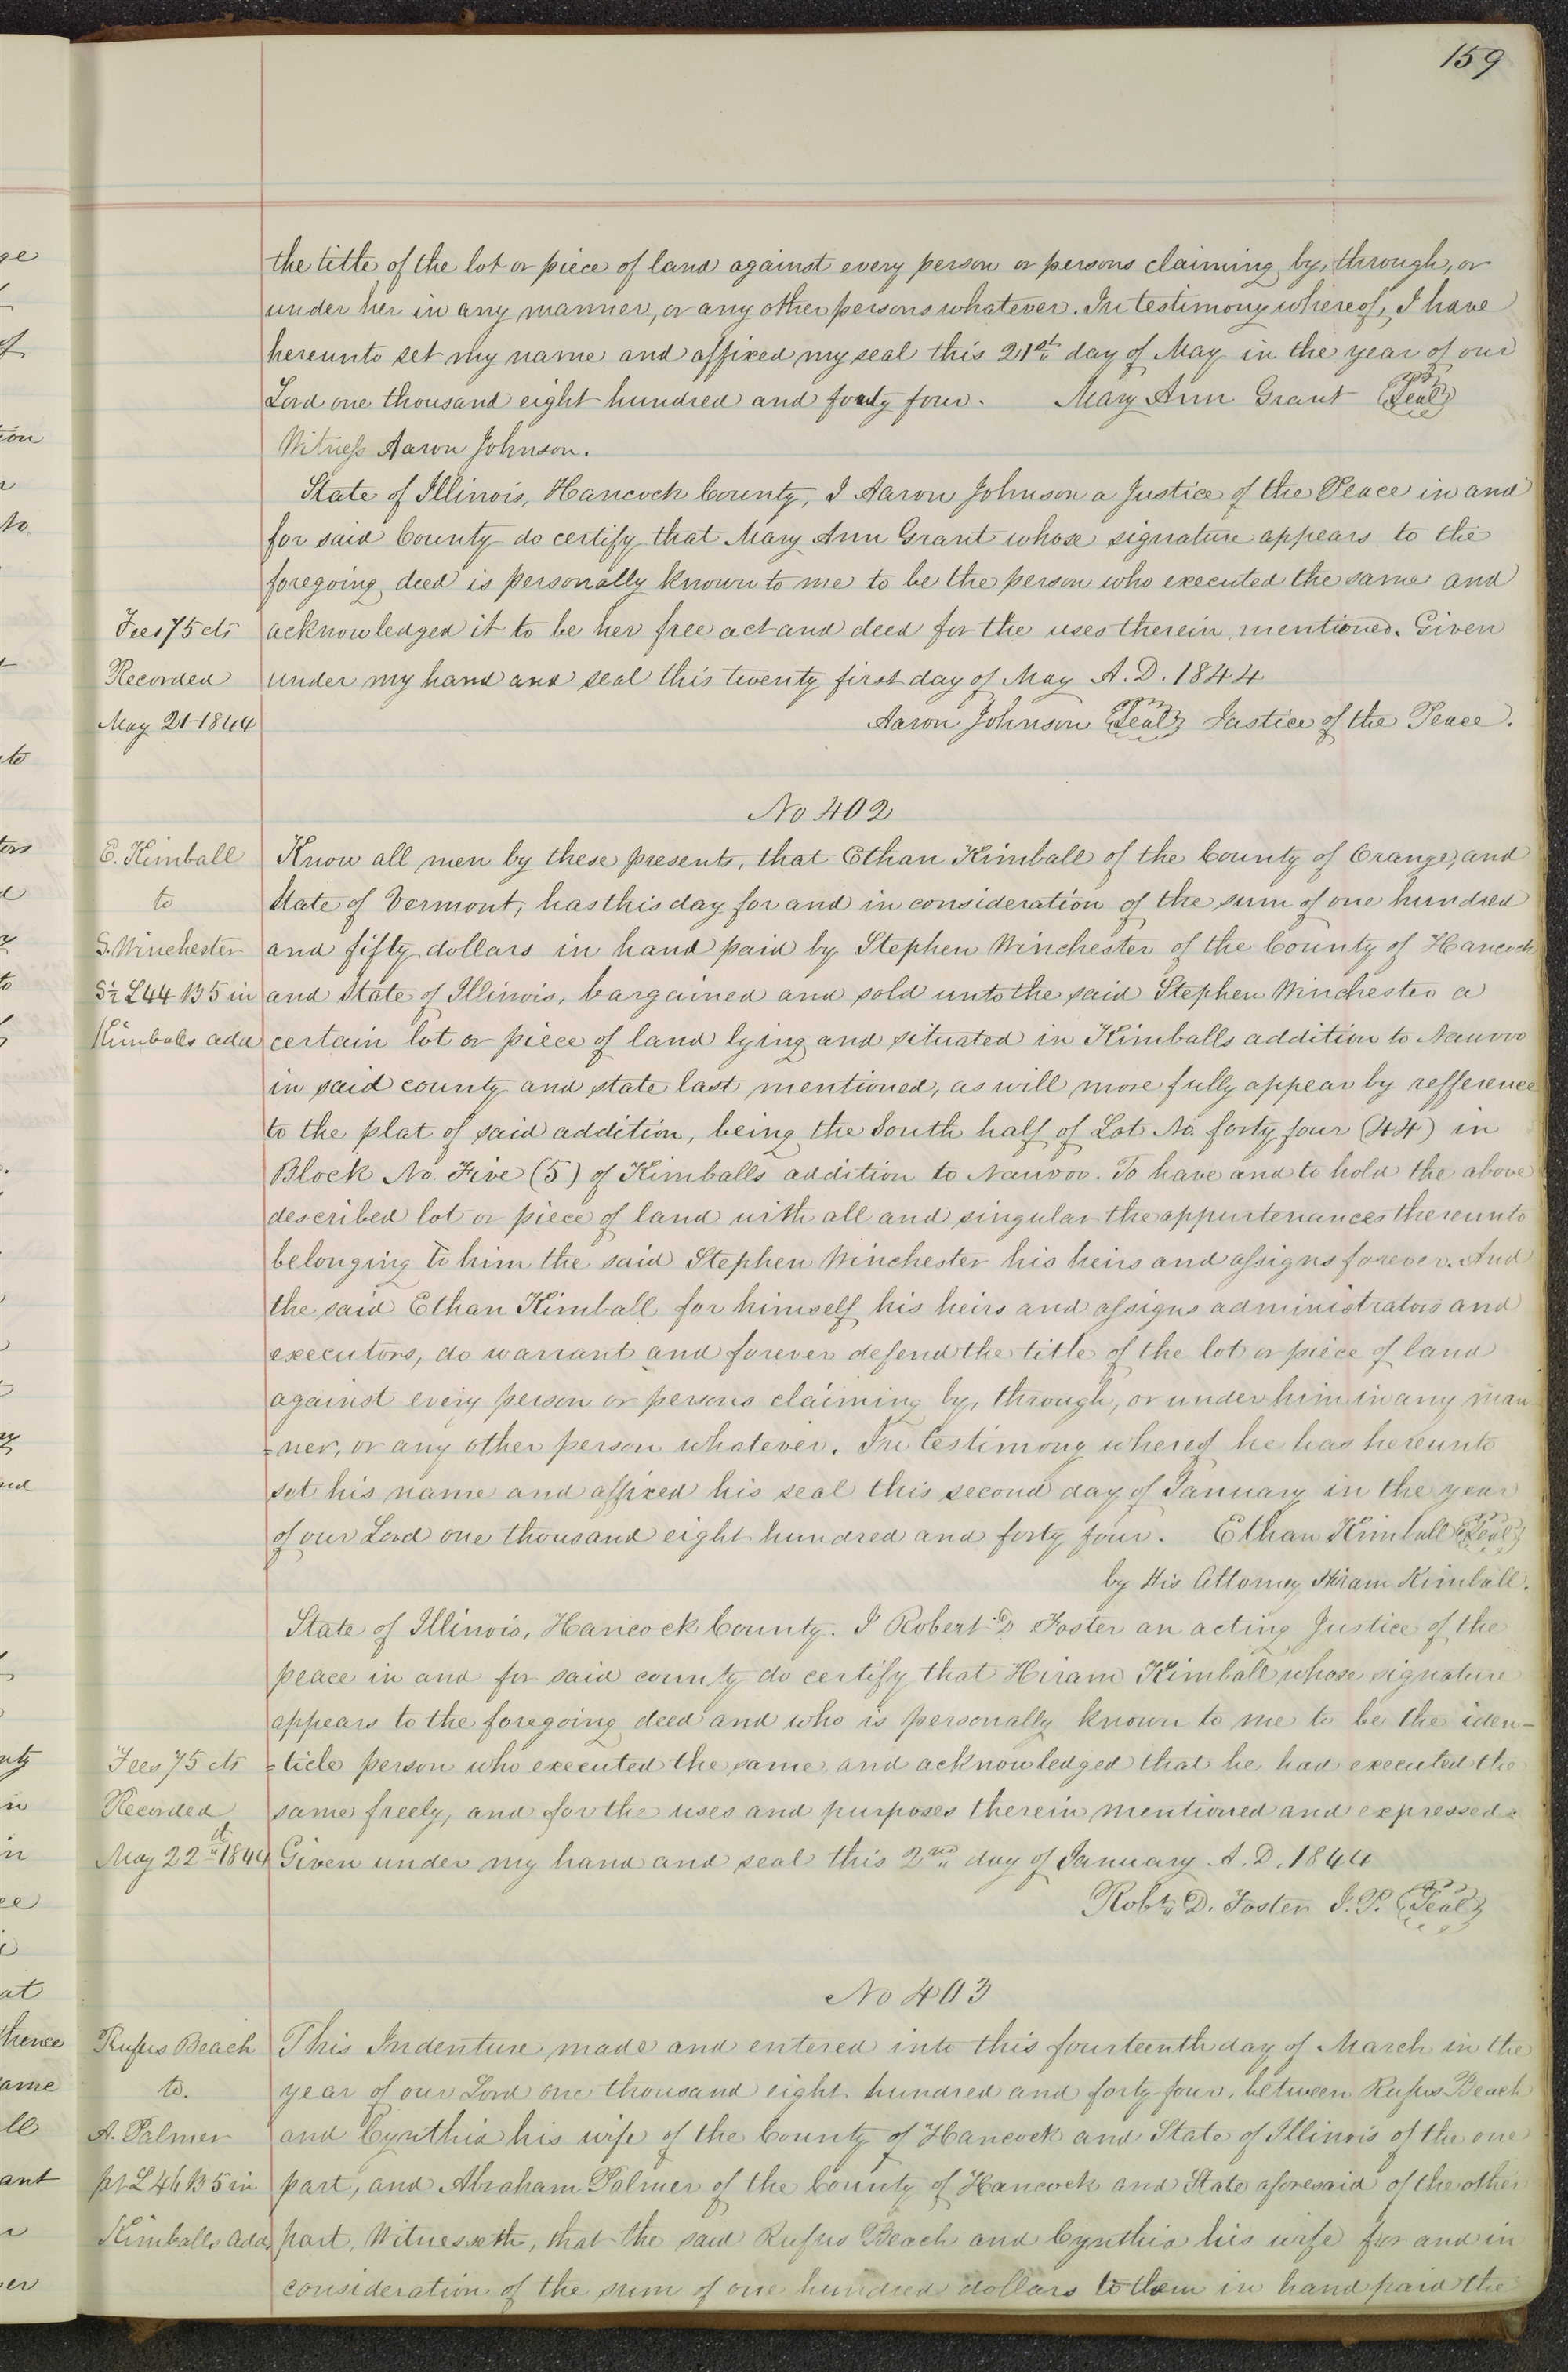 159
the title of the lot or piece of land against every person or persons claiming by, through, or
under her in any manner, or any other persons whatever. In testimony whereof, I have
hereunto set my name and affixed my seal this 21st day of May in the year of our
Lord one thousand eight hundred and forty four. Mary Ann Grant Seal
Witness Aaron Johnson.
State of Illinois, Hancock County, I Aaron Johnson a Justice of the Peace in and
for said County do certify that Mary Ann Grant whose signature appears to the
foregoing deed is personally known to me to be the person who executed the same and
Fees 75 cts acknowledged it to be her free act and deed for the uses therein mentioned. Given
Recorded under my hand and seal this twenty first day of May A.D. 1844
May 21 1844 Aaron Johnson Seal Justice of the Peace.
No 402
E. Kimball Know all men by these presents, that Ethan Kimball of the County of Orange, and
to State of Vermont, has this day for and in consideration of the sum of one hundred
S. Winchester and fifty dollars in hand paid by Stephen Winchester of the County of Hancock
S½ L44 B5 in and State of Illinois, bargained and sold unto the said Stephen Winchester a
Kimballs add certain lot or piece of land lying and situated in Kimballs addition to Nauvoo
in said county and state last mentioned, as will more fully appear by refference
to the plat of said addition, being the South half of Lot No. forty four (44) in
Block No. Five (5) of Kimballs addition to Nauvoo. To have and to hold the above
described lot or piece of land with all and singular the appurtenances thereunto
belonging to him the said Stephen Winchester his heirs and assigns forever. And
the said Ethan Kimball for himself his heirs and assigns administrators and
executors, do warrant and forever defend the title of the lot or piece of land
against every person or persons claiming by, through, or under him in any man
=ner, or any other person whatever. In testimony whereof he has hereunto
set his name and affixed his seal this second day of January in the year
of our Lord one thousand eight hundred and forty four. Ethan Kimball Seal
by His Attorney Hiram Kimball.
State of Illinois, Hancock County. I Robert D Foster an acting Justice of the
peace in and for said county do certify that Hiram Kimball whose signature
appears to the foregoing deed and who is personally known to me to be the iden-
Fees 75 cts =ticle person who executed the same and acknowledged that he had executed the
Recorded same freely, and for the uses and purposes therein mentioned and expressed.
May 22d 1844 Given under my hand and seal this 2nd day of January A.D. 1844
Robt. D. Foster J.P. Seal
No 403
Rufus Beach This Indenture made and entered into this fourteenth day of March in the
to. year of our Lord one thousand eight hundred and forty four, between Rufus Beach
A. Palmer and Cynthia his wife of the County of Hancock and State of Illinois of the one
pt L46 B5 in part, and Abraham Palmer of the County of Hancock and State aforesaid of the other
Kimballs add. part, Witnesseth, that the said Rufus Beach and Cynthia his wife for and in
consideration of the sum of one hundred dollars to them in hand paid the